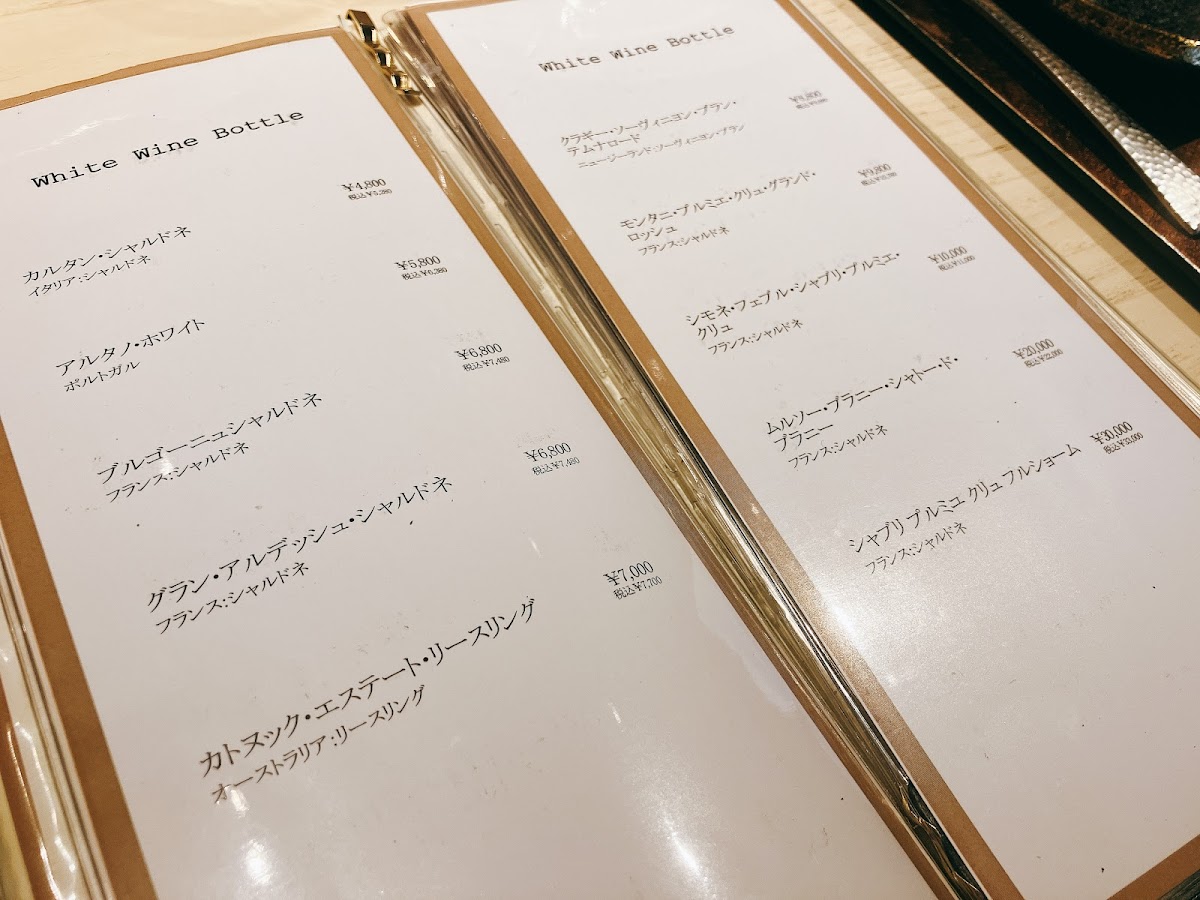 White Wine Bottle
カルタン・シャルドネ
イタリア:シャルドネ
¥4,800
税込¥5,280
アルタノ・ホワイト
ポルトガル
¥5,800
税込¥6,380
ブルゴーニュシャルドネ
フランス:シャルドネ
¥6,800
税込¥7,480
グラン・アルデッシュ・シャルドネ
フランス:シャルドネ
¥6,800
税込¥7,480
カトヌック・エステート・リースリング
オーストラリア:リースリング
¥7,000
税込¥7,700
White Wine Bottle
クラギー・ソーヴィニヨン・ブラン・
テムナロード
ニュージーランド:ソーヴィニヨン・ブラン
モンタニ・プルミエ・クリュ・グランド・
ロッシュ
フランス:シャルドネ
¥9,800
税込¥10,780
シモネ・フェブル・シャブリ・プルミエ・
クリュ
フランス:シャルドネ
¥10,000
税込¥11,000
ムルソー・ブラニー・シャトー・ド・
ブラニー
フランス:シャルドネ
¥20,000
税込¥22,000
シャブリ プルミュ クリュ フルショーム
フランス:シャルドネ
¥30,000
税込¥33,000